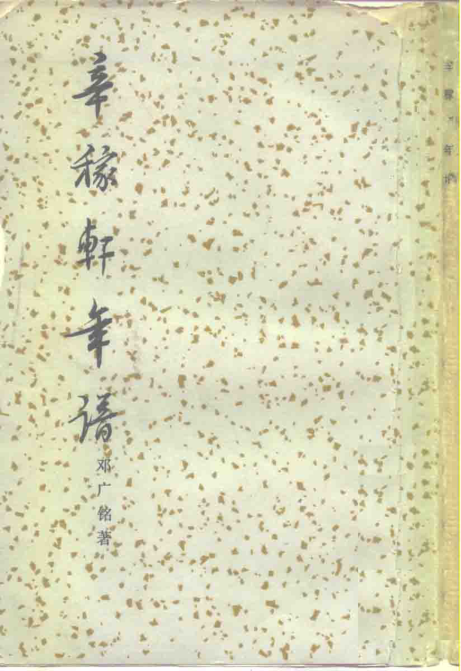 辛稼軒年谱
邓广铭著
辛稼轩年谱